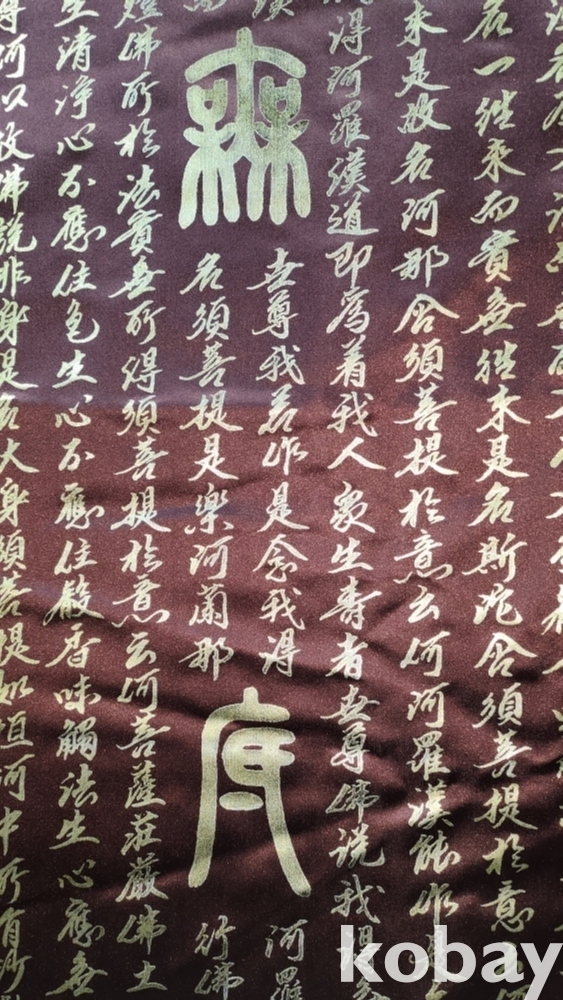 名一往来而實無往来是名斯陀含須菩提於意云
来是故名阿那含須菩提於意云何阿羅漢能作是
得阿羅漢道即為着我人衆生壽者世尊佛說我得
無
世尊我若作是念我得
名須菩提是樂阿蘭那
度
阿羅
行佛
燈佛所於法實無所得須菩提於意云何菩薩莊嚴佛土
生清淨心不應住色生心不應住聲香味觸法生心應無
何以故佛說非身是名大身須菩提如恒河中所有沙
kobay